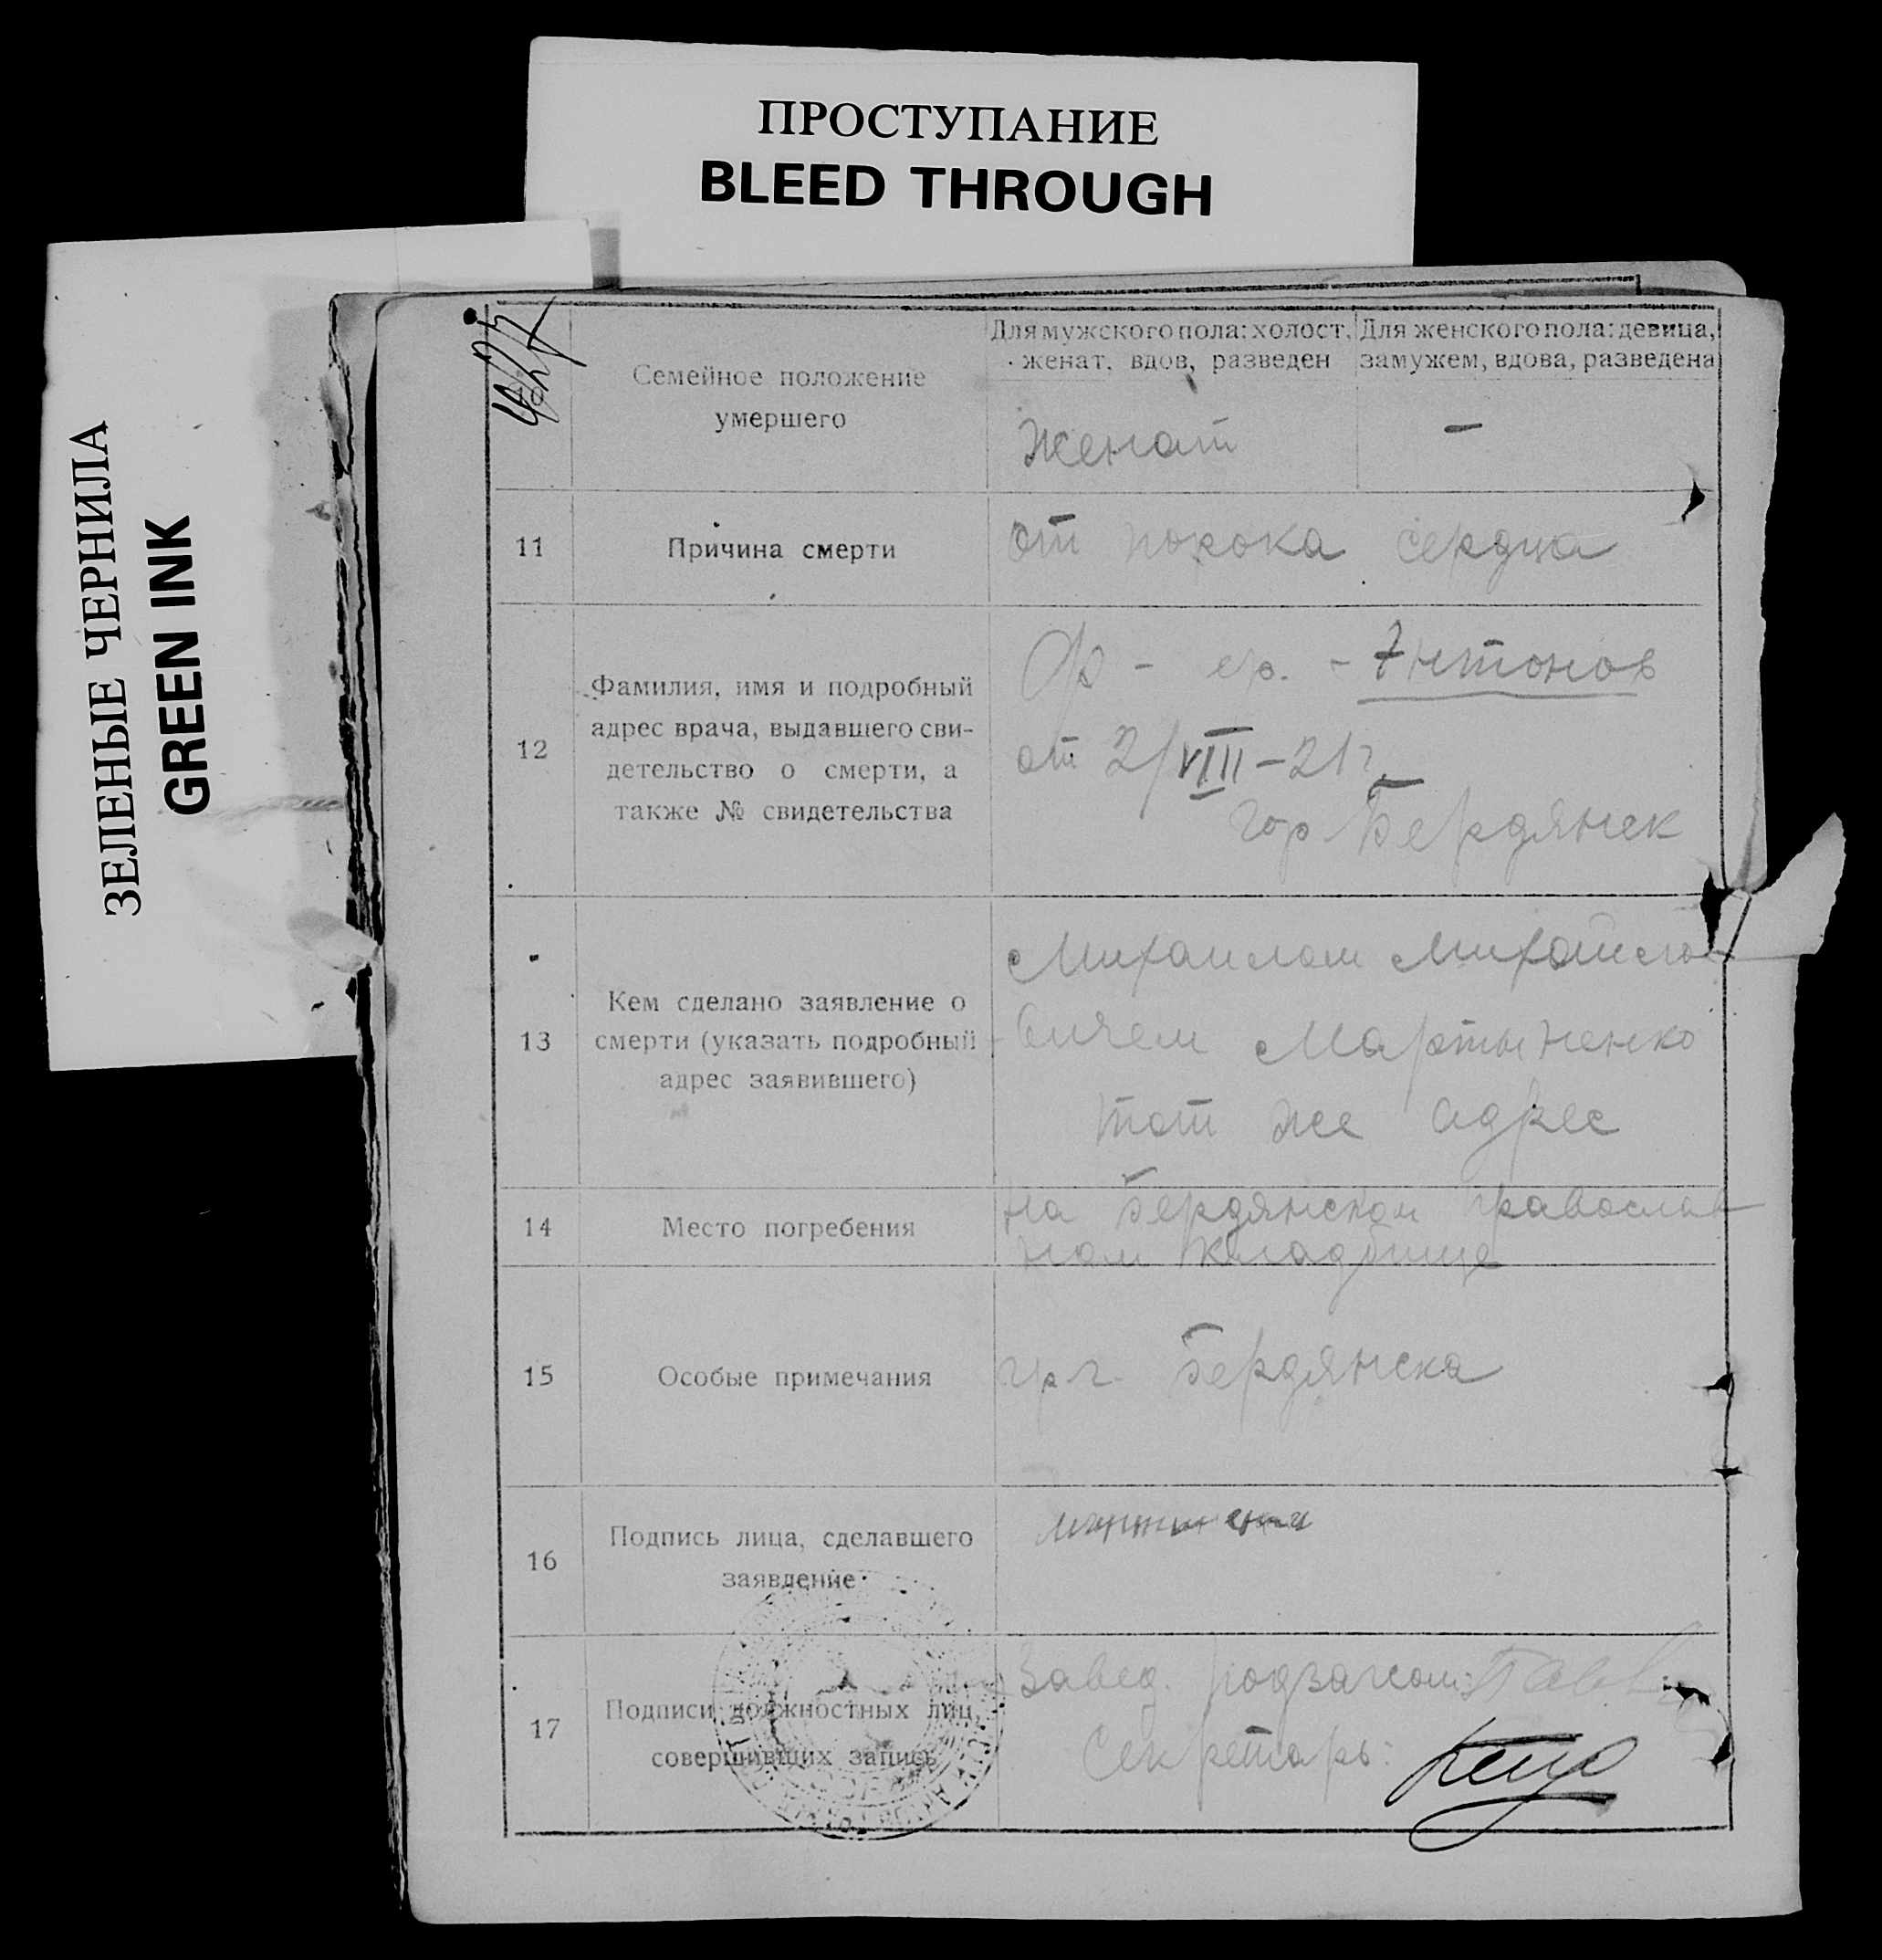 ПРОСТУПАНИЕ
BLEED THROUGH
ЗЕЛЕНЫЕ ЧЕРНИЛА
GREEN INK
Семейное положение
умершего
Для мужского пола: холост,
женат, вдов, разведен
Для женского пола: девица,
замужем, вдова, разведена
Женат
—
11
Причина смерти
от порока сердца
12
Фамилия, имя и подробный
адрес врача, выдавшего сви-
детельство о смерти, а
также № свидетельства
Антонов
от 2/VIII–21 г.
гор Бердянск
13
Кем сделано заявление о
смерти (указать подробный
адрес заявившего)
Михаилом Михайло
вичем Мартыненко
тот же адрес
14
Место погребения
на Бердянском православ
ном кладбище
15
Особые примечания
гр г. Бердянска
16
Подпись лица, сделавшего
заявление
17
Подписи должностных лиц,
совершивших запись
Завед. подзагсом:
Секретарь: